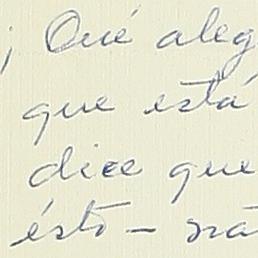 ¡Qué aleg
que está
dice que
ésto -